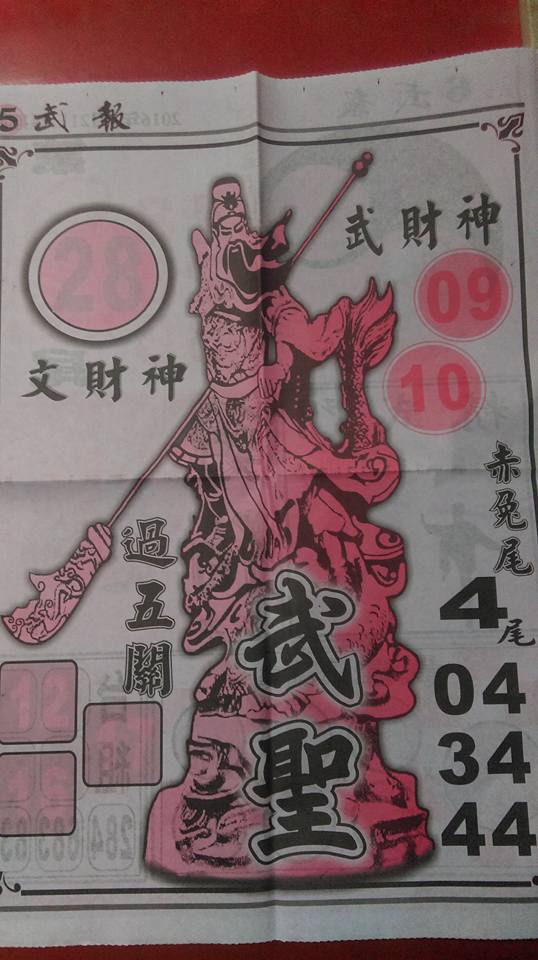 5 武報
武財神
28
09
文財神
10
赤兔尾
過五關
4尾
武聖
04
34
44